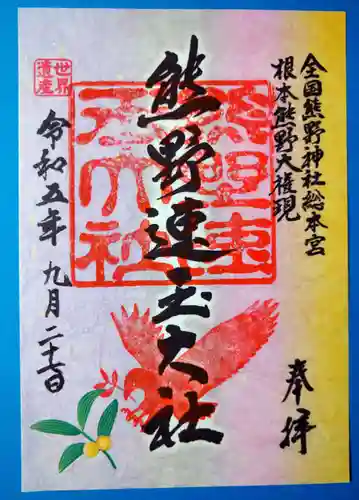 全国熊野神社総本宮
根本熊野大権現
奉拝
熊野速玉大社
熊野速玉大社
世界遺産
令和五年 九月二十七日